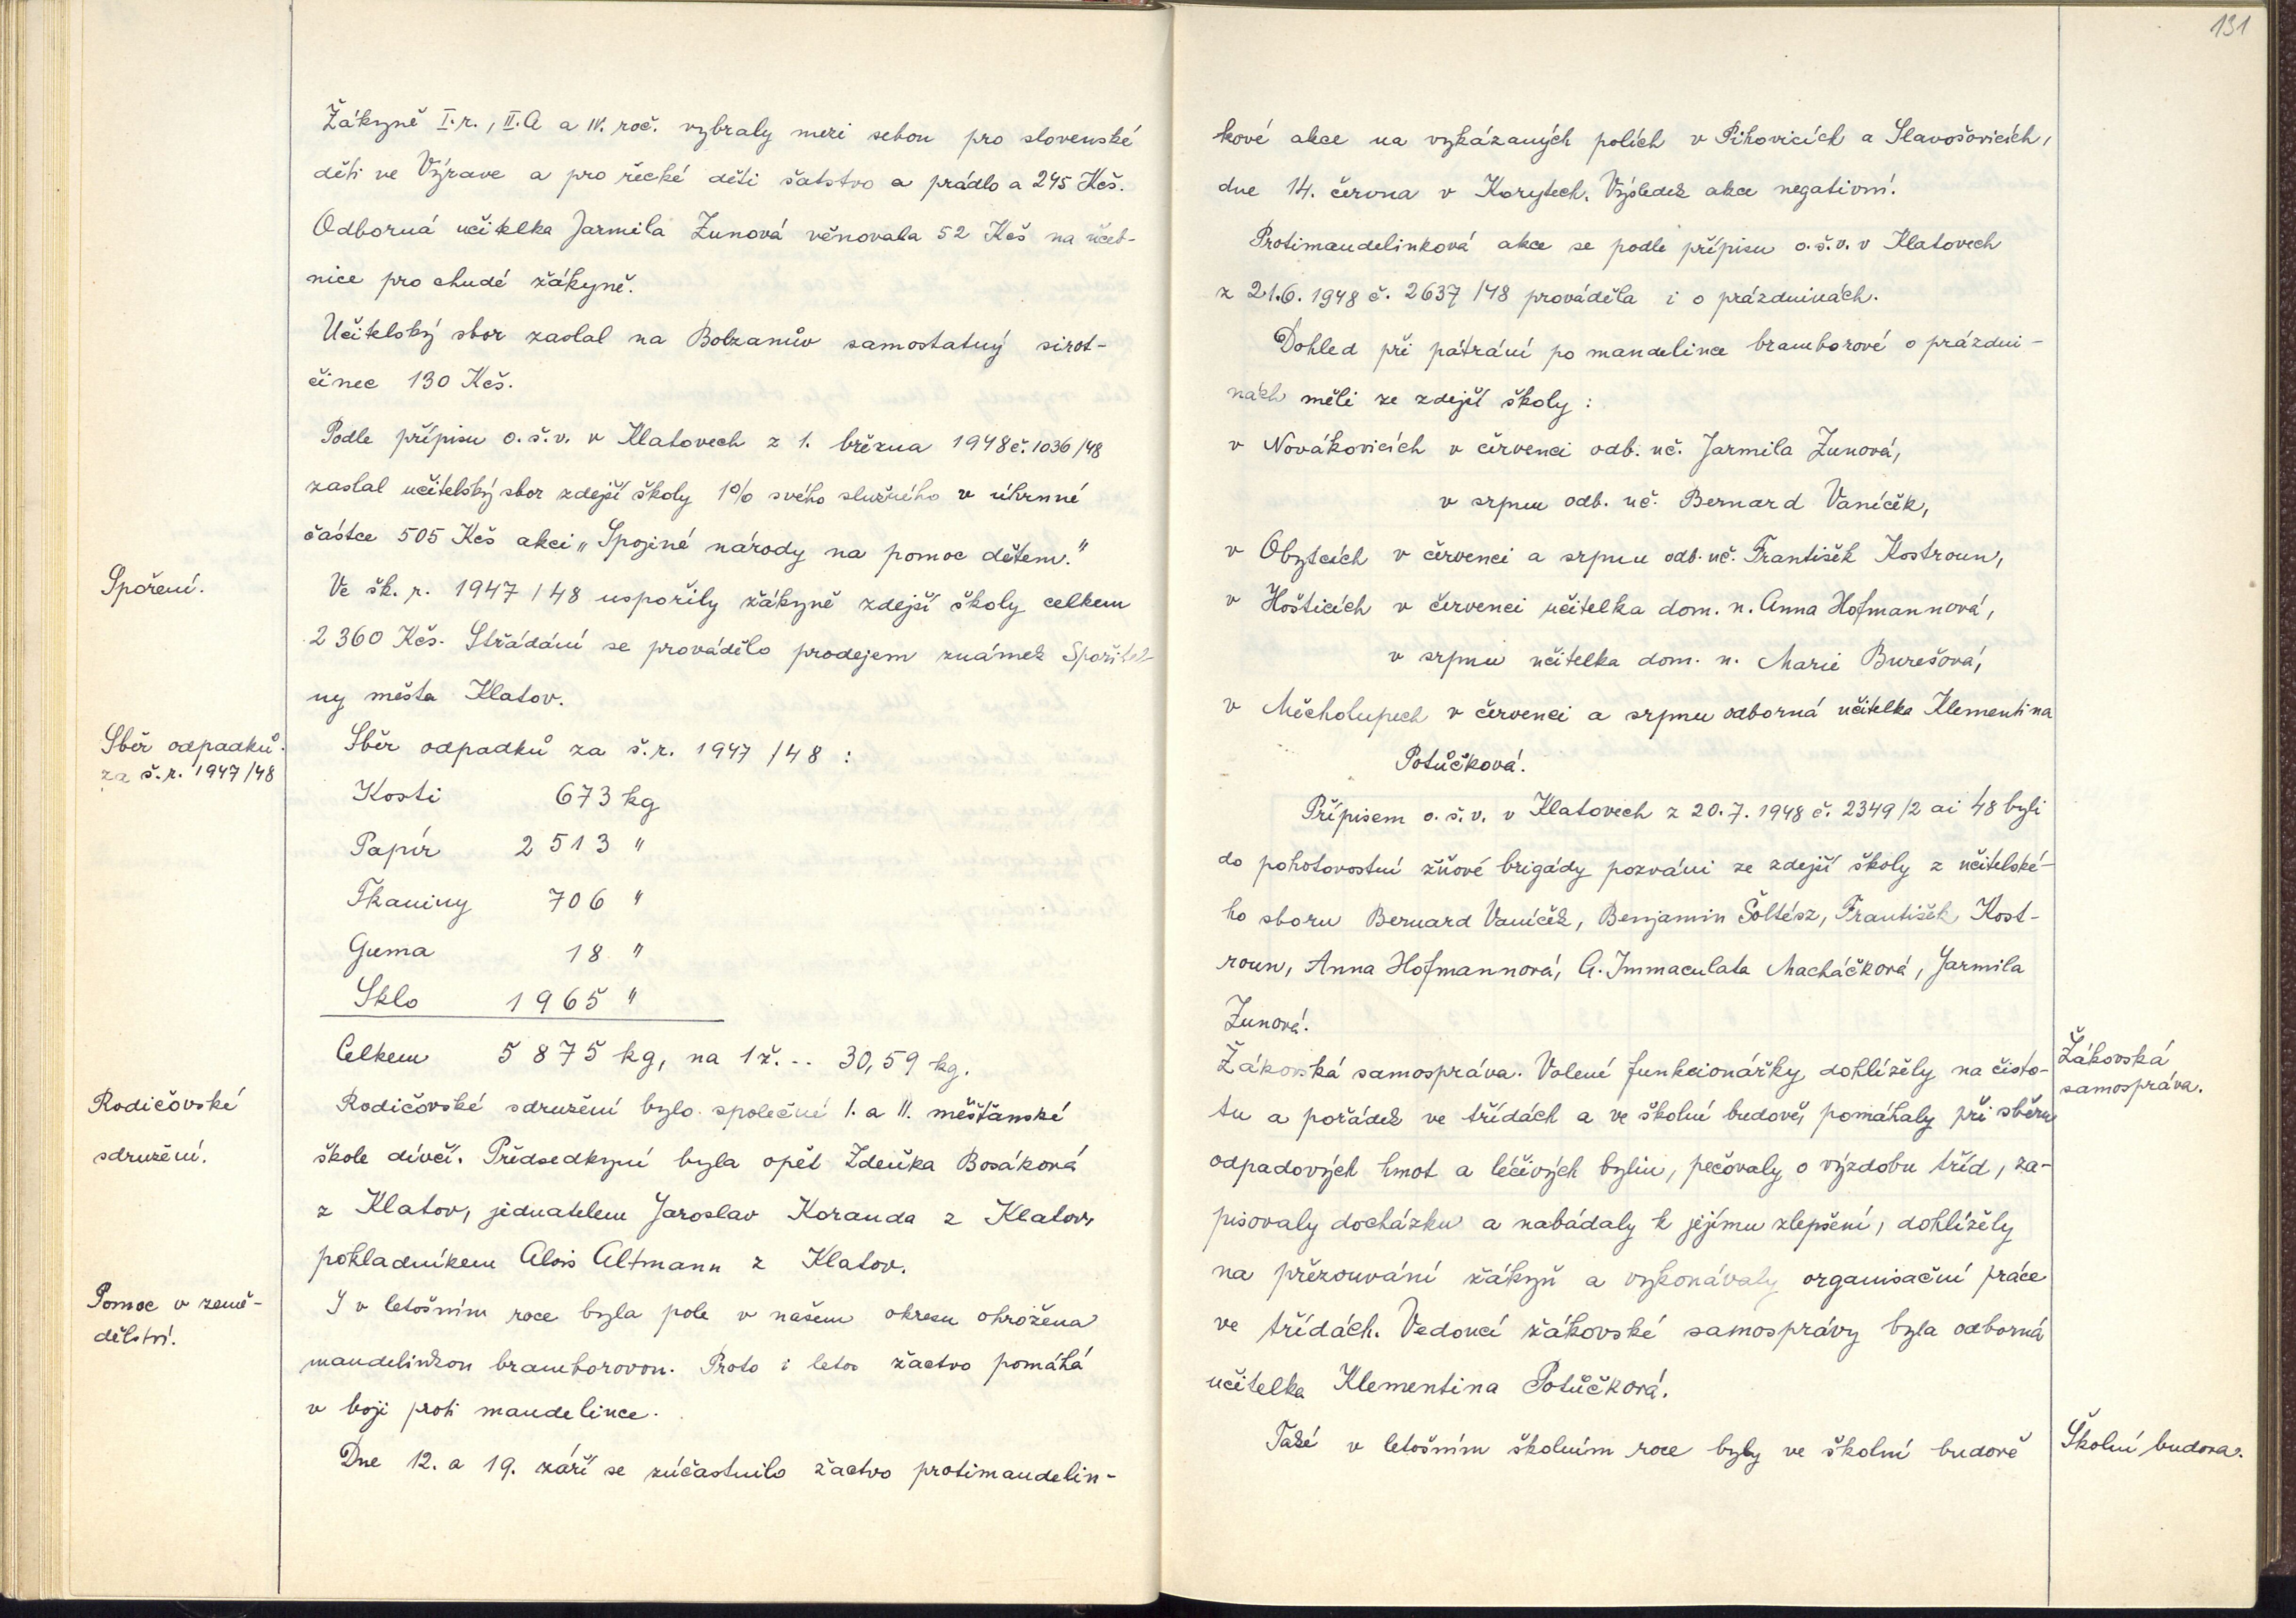 Žákyně I.r., II.A a IV. roč. vybraly mezi sebou pro slovenské
děti ve Výrave a pro řecké děti šatstvo a prádlo a 245 Kčs.
Odborná učitelka Jarmila Zunová věnovala 52 Kčs na učeb-
nice pro chudé žákyně.
Učitelský sbor zaslal na Bolzanův samostatný sirot-
činec 130 Kčs.
Podle přípisu o.š.v. v Klatovech z 1. března 1948 č. 1036/48
zaslal učitelský sbor zdejší školy 1% svého služného v úhrnné
částce 505 Kčs akci „Spojené národy na pomoc dětem."
Spoření.
Ve šk. r. 1947/48 uspořily žákyně zdejší školy celkem
2 360 Kčs. Střádání se provádělo prodejem známek Spořitel
ny města Klatov.
Sběr odpadků
za š.r. 1947/48
Sběr odpadků za š.r. 1947/48 :
Kosti 673 kg
Papír 2 513 "
Tkaniny 706 "
Guma 18 "
Sklo 1 965 "
Celkem 5 875 kg, na 1 ž. .. 30,59 kg.
Rodičovské
sdružení.
Rodičovské sdružení bylo společné I. a II. měšťanské
škole dívčí. Předsedkyní byla opět Zdeňka Bosáková
z Klatov, jednatelem Jaroslav Koranda z Klatov,
pokladníkem Alois Altmann z Klatov.
Pomoc v země-
dělství.
I v letošním roce byla pole v našem okresu ohrožena
mandelinkou bramborovou. Proto i letos žactvo pomáhá
v boji proti mandelince.
Dne 12. a 19. září se zúčastnilo žactvo protimandelin-
131
kové akce na vykázaných polích v Pihovicích a Slavošovicích,
dne 14. června v Korytech. Výsledek akce negativní.
Protimandelinková akce se podle přípisu o.š.v. v Klatovech
z 21.6. 1948 č. 2637/48 prováděla i o prázdninách.
Dohled při pátrání po mandelince bramborové o prázdni-
nách měli ze zdejší školy :
v Novákovicích v červenci odb. uč. Jarmila Zunová,
v srpnu odb. uč. Bernard Vaníček,
v Obytcích v červenci a srpnu odb. uč. František Kostroun,
v Hošticích v červenci učitelka dom. n. Anna Hofmannová,
v srpnu učitelka dom. n. Marie Burešová,
v Měcholupech v červenci a srpnu odborná učitelka Klementina
Potůčková.
Přípisem o.š.v. v Klatovech z 20.7. 1948 č. 2349/2 ai 48 byli
do pohotovostní žňové brigády pozváni ze zdejší školy z učitelské-
ho sboru Bernard Vaníček, Benjamin Šoltész, František Kost-
roun, Anna Hofmannová, A. Immaculata Macháčková, Jarmila
Zunová.
Žákovská
samospráva.
Žákovská samospráva. Volené funkcionářky dohlížely na čisto-
tu a pořádek ve třídách a ve školní budově, pomáhaly při sběru
odpadových hmot a léčivých bylin, pečovaly o výzdobu tříd, za-
pisovaly docházku a nabádaly k jejímu zlepšení, dohlížely
na přezouvání žákyň a vykonávaly organisační práce
ve třídách. Vedoucí žákovské samosprávy byla odborná
učitelka Klementina Potůčková.
Školní budova.
Také v letošním školním roce byly ve školní budově